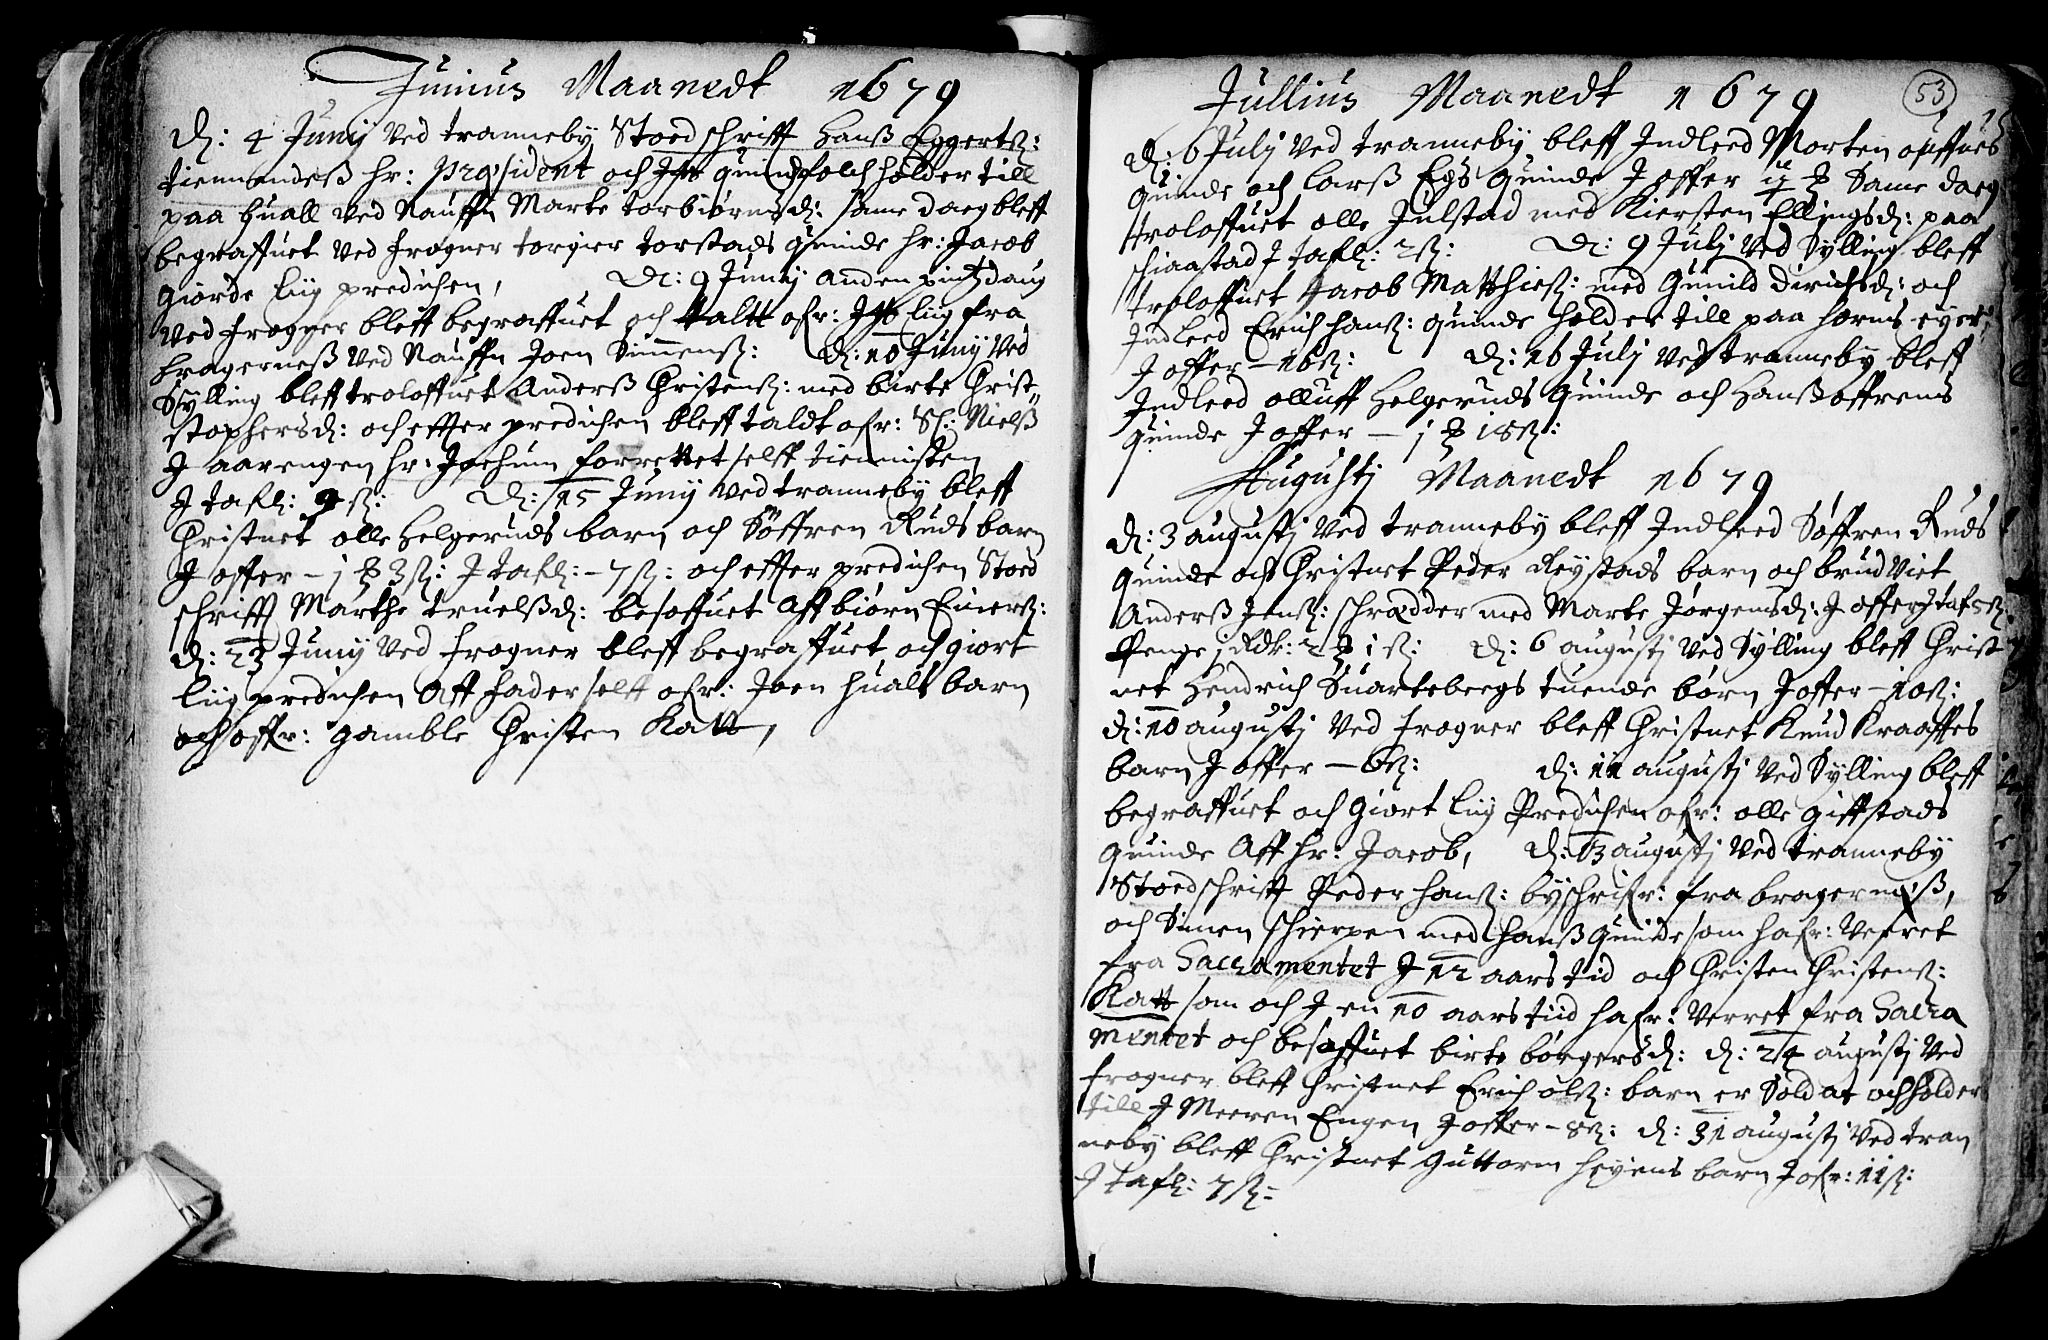 Junius Maanedt 1679
d: 4 Junij Ved tranneby Stoed schrifft Hanß Eggertß:
tienendeß hr: Præsident och Itt quindfolch holder till
paa Huall ved Nauffn Marte torbiørnsd: same daeg bleff
begraffuet Ved frogner torgier torstads quinde hr: Jacob
giorde liig predichen, D: 9 Junij anden pintzdaug
Ved frogner bleff begraffuet och taltt ofr: Itt liig fra
bragerneß Ved Nauffn Joen Simenß: d: 10 Junij Ved
Sylling bleff troloffuet Anderß Christenß: med birte Christ
stophersd: och effter predichen bleff taldt ofr: Sl: Nielß
J aarengen hr: Jochum forrettet selff tiennisten
J tafl: 9 ß: D: 15 Junij Ved tranneby bleff
Christnet olle Helgeruds barn och Søffren Ruds barn
J offer - j ʒ 3ß: J tafl: - 7ß: och effter predichen Stoed
schrifft Marthe truelßd: besoffuet Aff biørn Einerß:
d: 23 Junij Ved frogner bleff begraffuet och giort
liig predichen Aff fader selff ofr: Joen hualß barn
och offr: gamble Christen Katt,
Jullius Maanedt 1679
53
d: 6 Julj Ved tranneby bleff Indleed Morten opffues
quinde och larß Egs quinde J offer Same daeg
troloffuet olle Julstad med Kiersten Ellingsd: paa
schiaastad J tafl: 2ß: D: 9 Julj Ved Sylling bleff
troloffuet Jacob Matthiesß: med Gunild dirichsd: och
Indleed Erich hanß: quinde holder till paa horns eyer,
J offer - 16ß: d: 16 Julj Ved tranneby bleff
Indleed olluff Helgeruds quinde och Hanß offrens
quinde J offer - j ʒ 18ß:
Augustj Maanedt 1679
d: 3 augustj Ved tranneby bleff Indleed Søffren Ruds
quinde och Christnet Peder Reystads barn och brud Viet
Anderß Jenß: schrædder med Marte Jørgensd: J offer J taf 5ß.
Penge j Rdr: 2 ʒ 1ß: d: 6 augustj Ved Sylling bleff Christ
net Hendrich Suartebergs tuende børn J offer - 10ß:
d: 10 augustj Ved frogner bleff Christnet Knud Kraaffes
barn J offer - 6ß: d: 11 augustj Ved Sylling bleff
begraffuet och giort liig Predichen ofr: olle giffstads
quinde Aff hr: Jacob, d: 13 augustj Ved tranneby
Stoed schrifft Peder hanß: byschrifr: fra bragerneß,
och Simen schierpen med hanß quinde som hafr: Verret
fra Sacramentet J 12 aars tid och Christen Christenß:
Katt som och J en 10 aars tiid hafr: Verret fra Sacra
mentet och besoffuet birte børgersd: d: 24 augustj Ved
frogner bleff Christnet Erich olß: barn er Soldat och holder
till J Meeren Engen J offer - 8ß: d: 31 augustj Ved tran
neby bleff Christnet guttorm heyens barn J ofr: 11ß:
J tafl: 7ß: